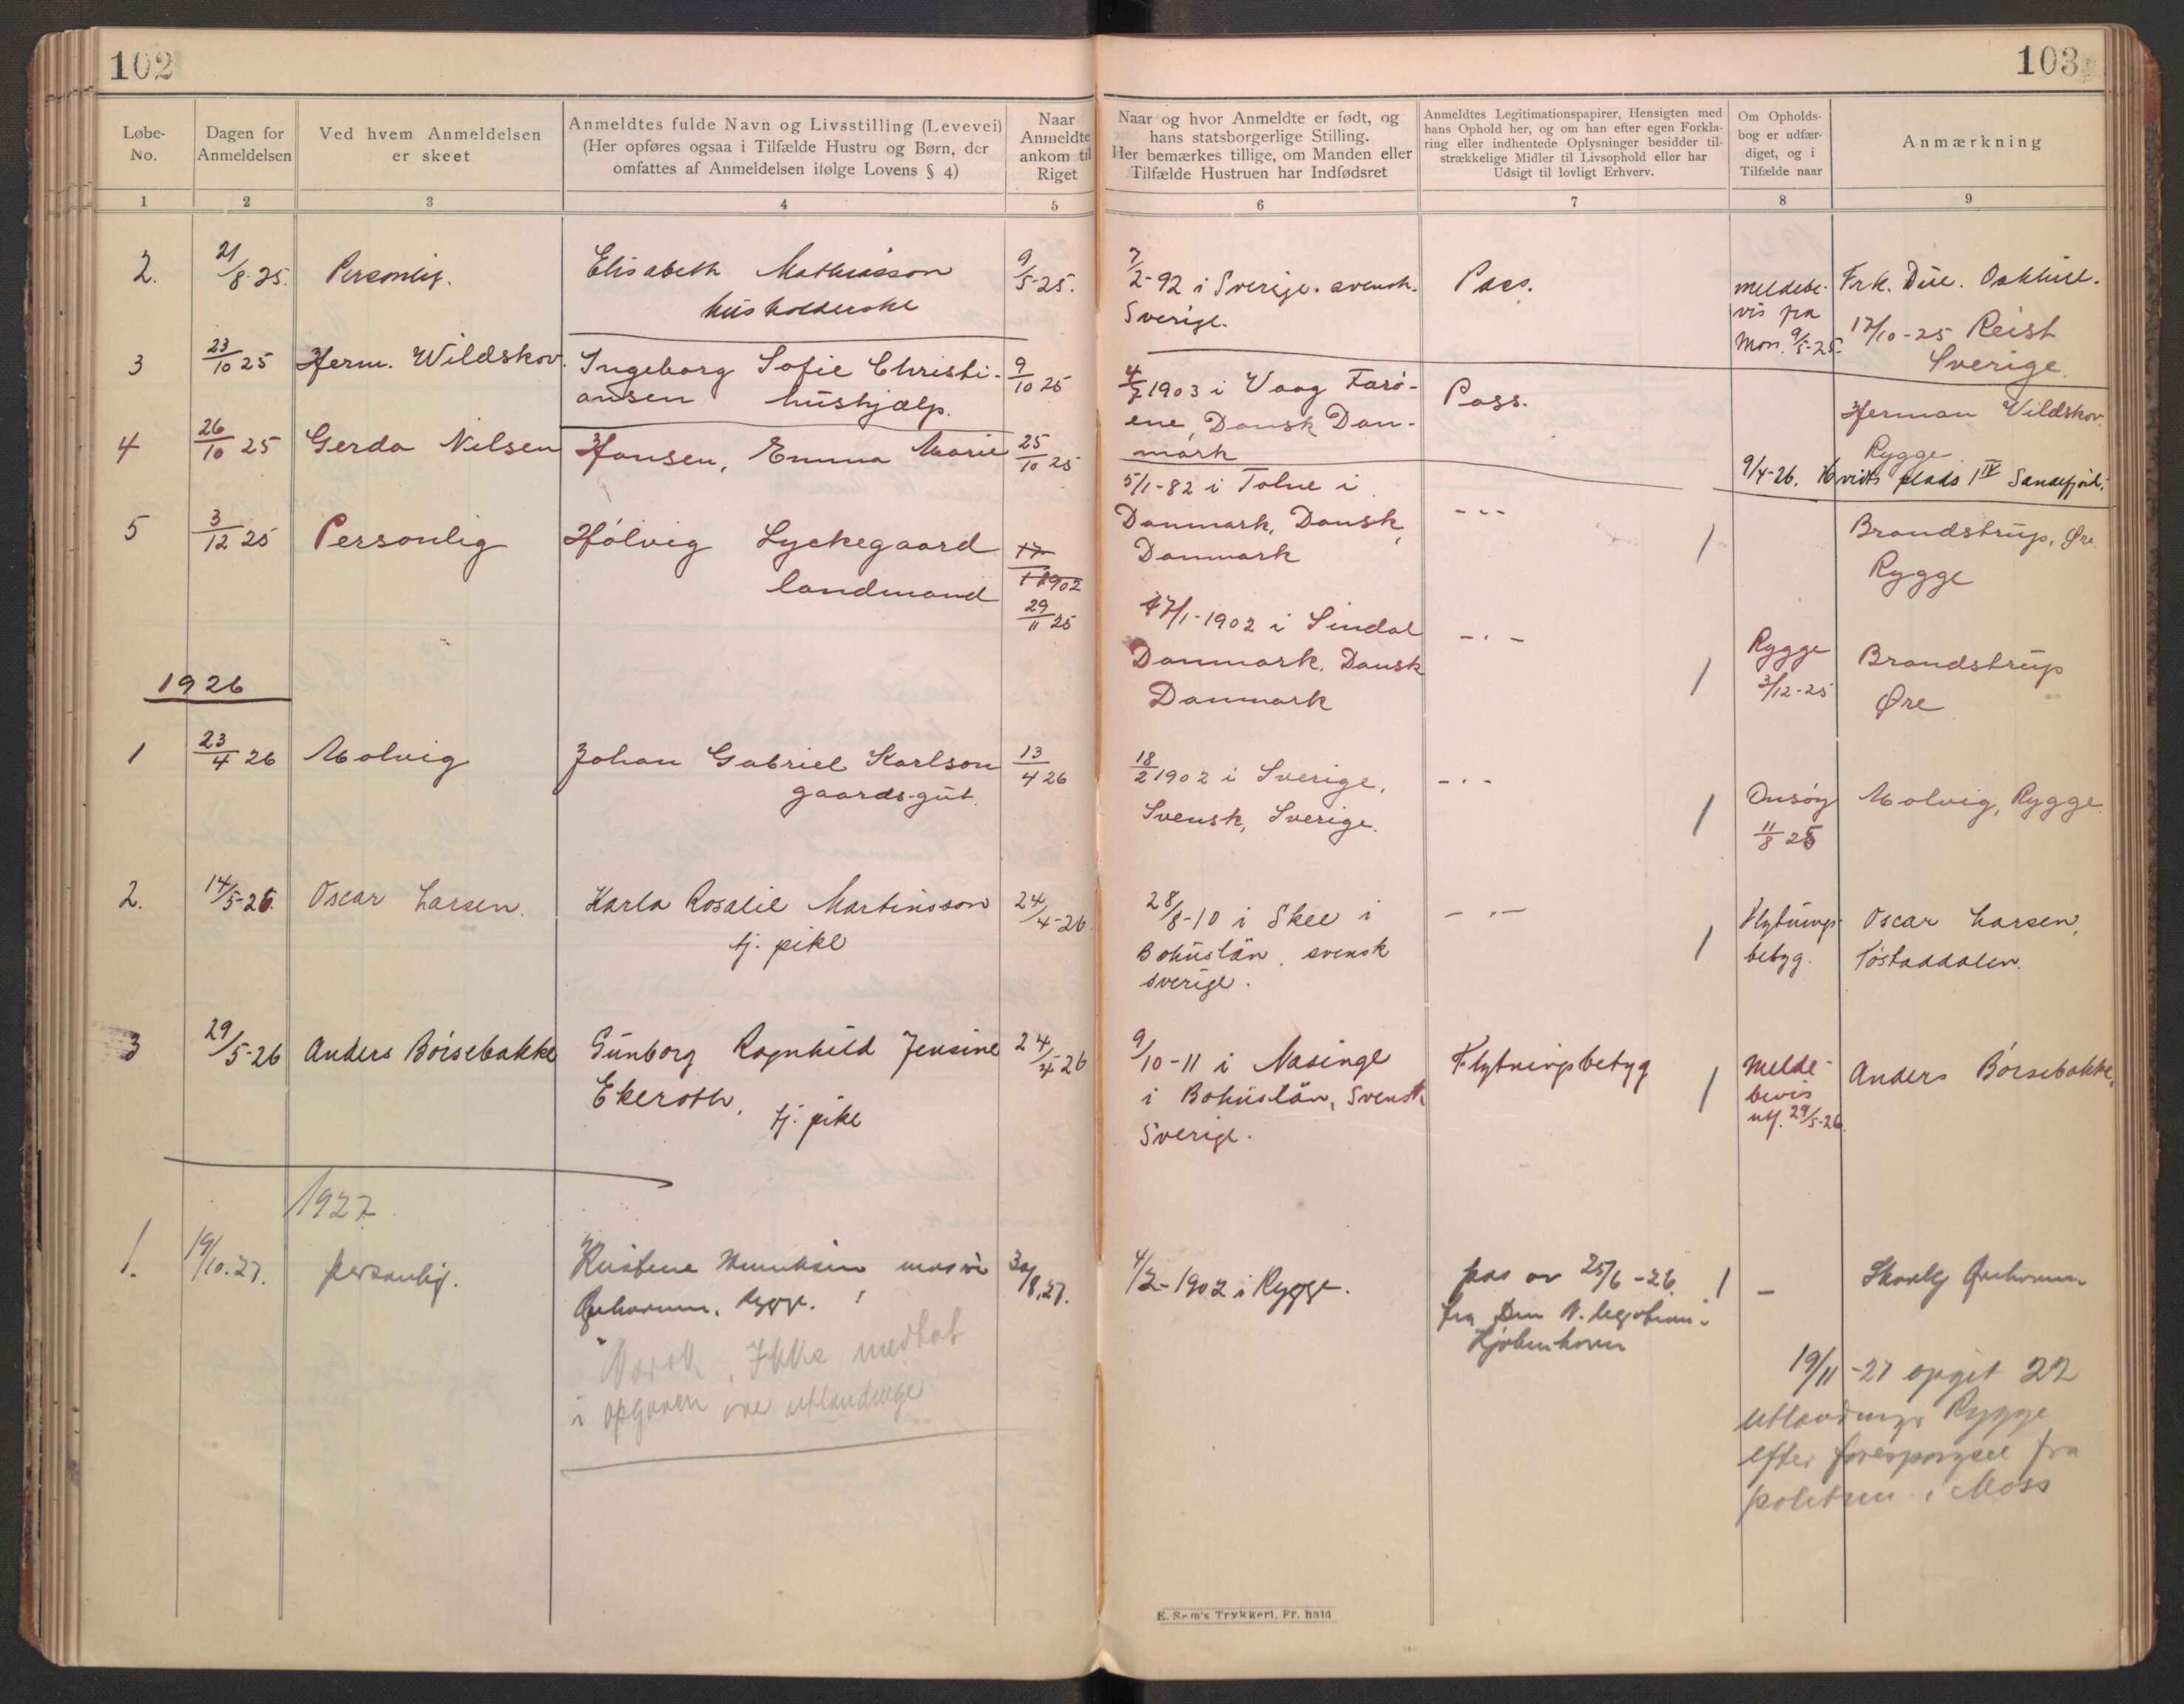 102
Løbe-
No.
Dagen for
Anmeldelsen
Ved hvem Anmeldelsen
er skeet
Anmeldtes fulde Navn og Livsstilling (Levevei)
(Her opføres ogsaa i Tilfælde Hustru og Børn, der
omfattes af Anmeldelsen ifølge Lovens § 4)
Naar
Anmeldte
ankom til
Riget
1 2 3 4 5
2. 21/8-25. Personlig. Elisabeth Mathiasson 9/5-25.
husholderske
3 23/10 25 Herm. Wildskov. Ingeborg Sofie Christi- 9/10 25
ansen hushjælp.
4 26/10 25 Gerda Nilsen Hansen, Emma Marie 25/10 25
5 3/12 25 Personlig Hölvig Lyckegaard 17/1 1902
landmand 29/11 25
1926
1 23/4 26 Molvig Johan Gabriel Karlson 13/4 26
gaards-gut.
2. 14/5-26. Oscar Larsen. Karla Rosalie Martinsson 24/4-26
tj. pike
3 29/5-26 Anders Börsebakke Gunborg Ragnhild Jensine 24/4-26
Ekeroth, tj. pike
1927
1. 14/10.27. personlig. 30/8.27.
Rygge.
Norsk. Ikke medtat
i opgaven over utlendinge
103
Naar og hvor Anmeldte er født, og
hans statsborgerlige Stilling.
Her bemærkes tillige, om Manden eller
Tilfælde Hustruen har Indfødsret
Anmeldtes Legitimationspapirer, Hensigten med
hans Ophold her, og om han efter egen Forkla-
ring eller indhentede Oplysninger besidder til-
strækkelige Midler til Livsophold eller har
Udsigt til lovligt Erhverv.
Om Opholds-
bog er udfær-
diget, og i
Tilfælde naar
Anmærkning
6 7 8 9
7/2-92 i Sverige. svensk. Pass. Meldebe- Frk. Due. Oakhill.
Sverige. vis fra
Mon. 9/5-25. 17/10-25 Reist
Sverige.
4/7 1903 i Vaag Farö- Pass. Herman Wildskov.
ene, Dansk Dan- Rygge
mark 9/4-26. Hvidts plads 1 IV Sandefjord.
5/1-82 i Tolne i - - -
Danmark, Dansk, / Brandstrup, Øre
Danmark Rygge
17/1-1902 i Sindal - . - Rygge Brandstrup
Danmark. Dansk / 3/12-25 Øre
Danmark
18/2 1902 i Sverige, - . - Onsöy Molvig, Rygge
Svensk, Sverige. / 11/8 25
28/8-10 i Skee i - . - Flytnings- Oscar Larsen,
Bohuslän. svensk / betyg. Töstaddalen.
sverige.
9/10-11 i Nasinge Flytningsbetyg Melde- Anders Börsebakke.
i Bohuslän, Svensk / bevis
Sverige. utf. 29/5-26.
4/2-1902 i Rygge. pas av 25/6-26. / -
fra Den N. legation i
Kjøbenhavn
19/11-27 opgit 22
utlændinge Rygge
efter forespørgsel fra
politiet i Moss
E. Sem's Trykkeri, Fr. hald